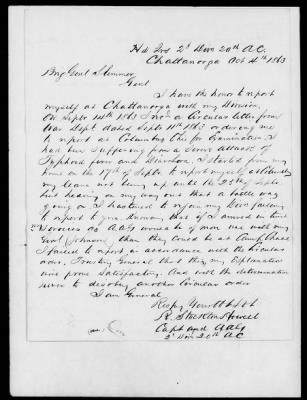 Hd Qrs 2d Divn 20th A.C.
Chattanooga Oct 4th 1863
Brig Genl Slemmer
Genl
I have the honor to report
myself at Chattanooga with my Division.
On Septr 14th 1863 I recd a Circular letter from
War Dept dated Septr 11th 1863 ordering me
to report at Columbus Ohio for Examination. I
had been suffering from a severe attack of
Typhoid fever and Diarrhoea. I started from my
home on the 17th of Septr to report myself at
my leave not being up until the 25th Septr
but hearing on my way out that a battle was
going on I hastened to rejoin my Divn failing
to report to you knowing that if I arrived in time
services as AAG would be of more use with my
Genl (Johnson) than they could be at Camp Chase
I failed to report in accordance with the Circular
order. Trusting General that this my Explanation
will prove Satisfactory. And with the determination
never to disobey another Circular order
I am General
Respy Your Obt Svt
R. Stockton Howell
Capt and AAG
2d Divn 20th AC